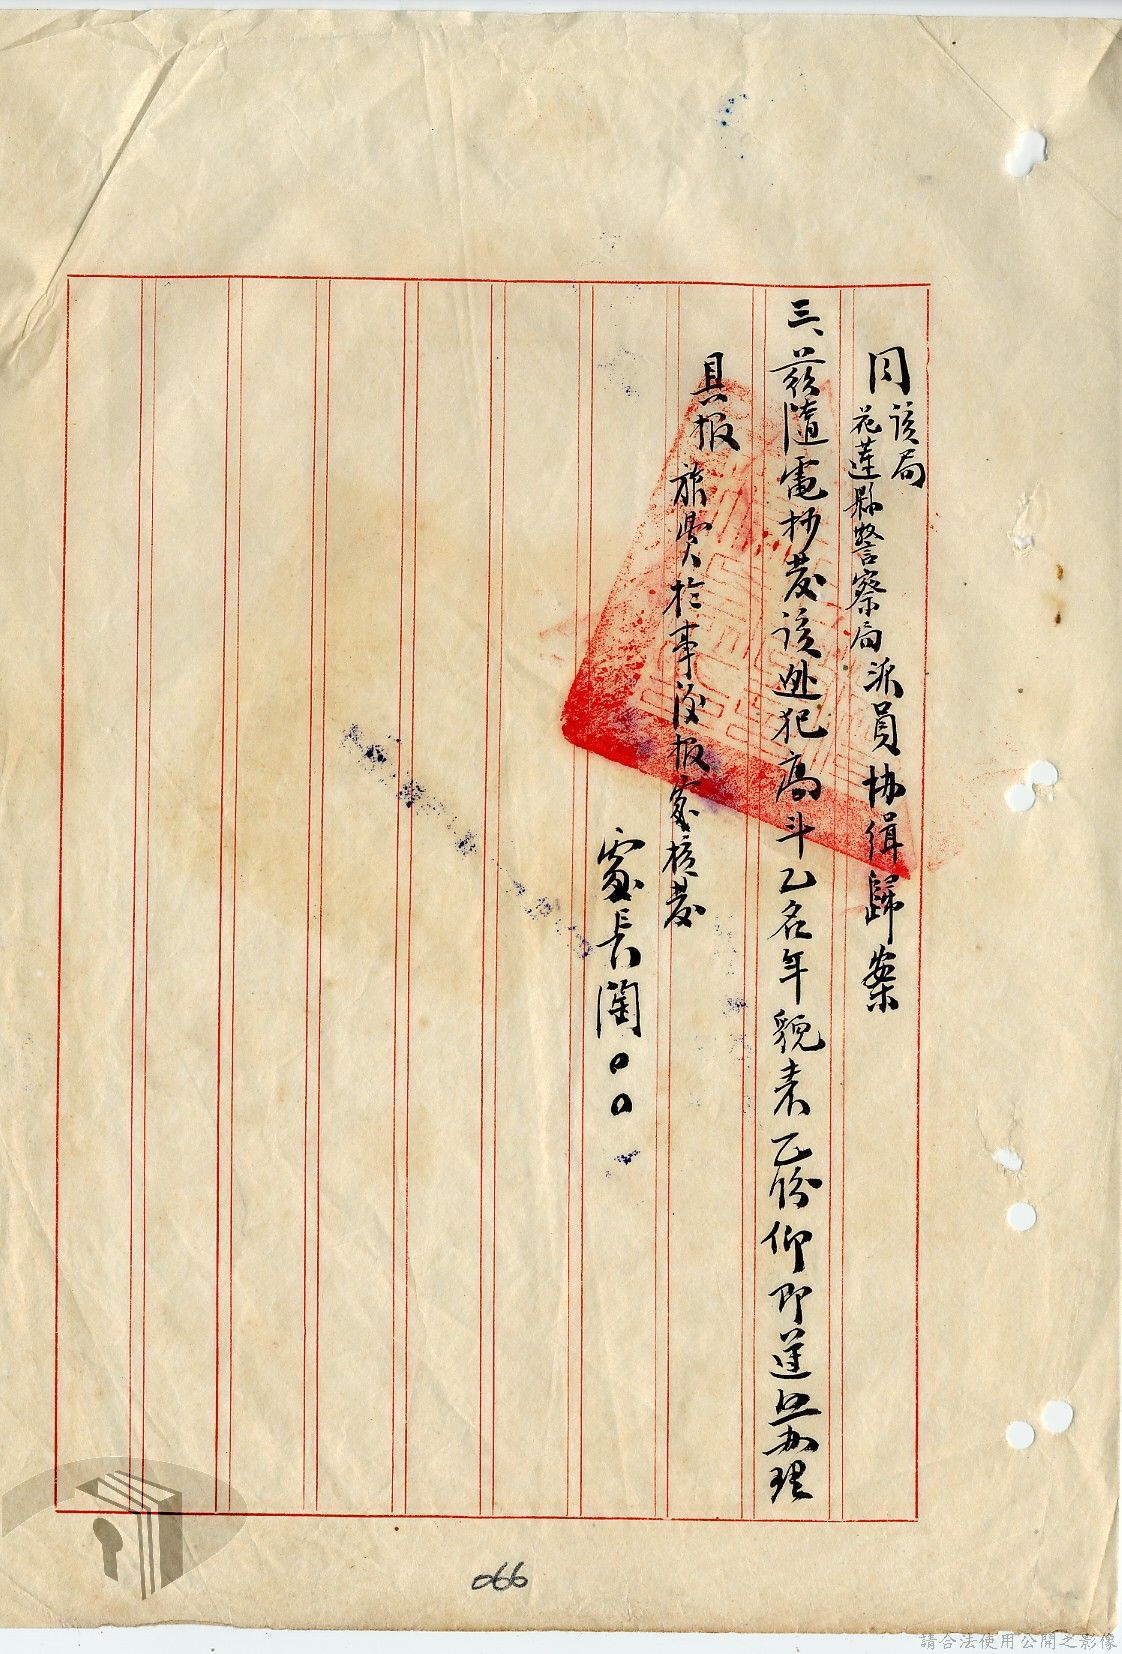 同該局
花蓮縣警察局派員協緝歸案
三、茲隨電抄發該逃犯高斗乙名年貌表乙份仰即遵照办理
具报旅費於事後报處核發
處長蔺〇〇
066
請合法使用公開之影像